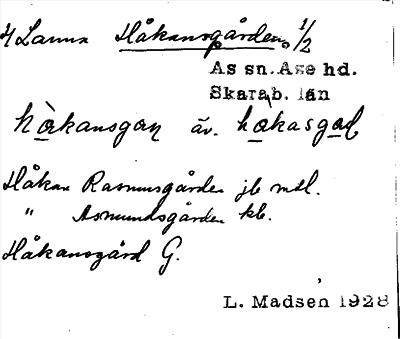 Lanna Håkansgården 1/2
As sn. Åse hd.
Skarab. län
hakansgan äv. hakasgad
Håkan Rasmusgården jb mtl.
" Asmundsgården kb.
Håkansgård G.
L. Madsen 1928